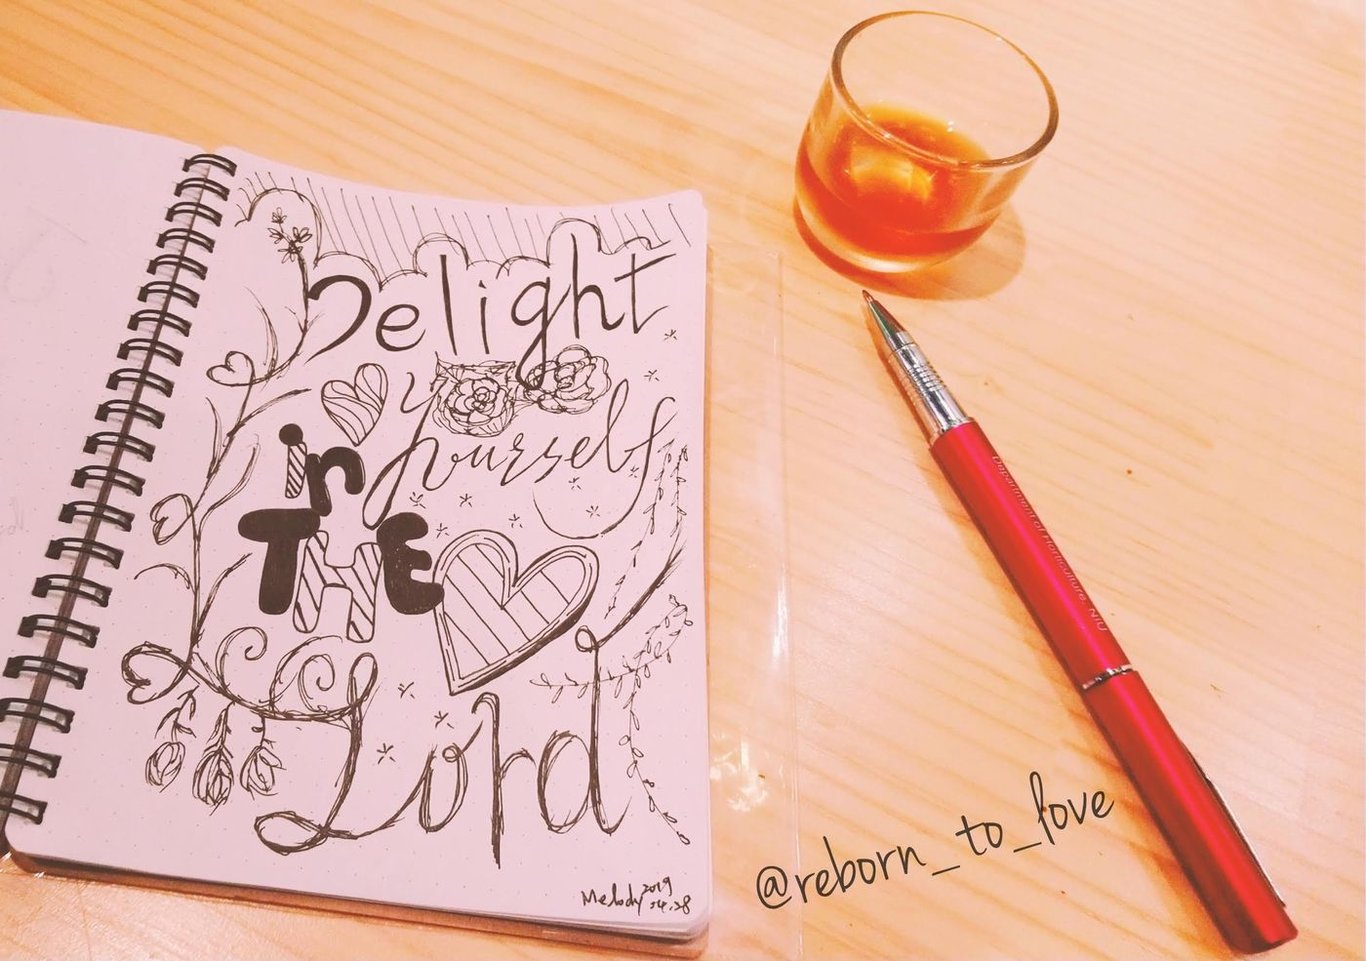 Delight
yourself
in
THE
Lord
Melody 2019
.4.28
Department of Horticulture, NIU
@reborn_to_love